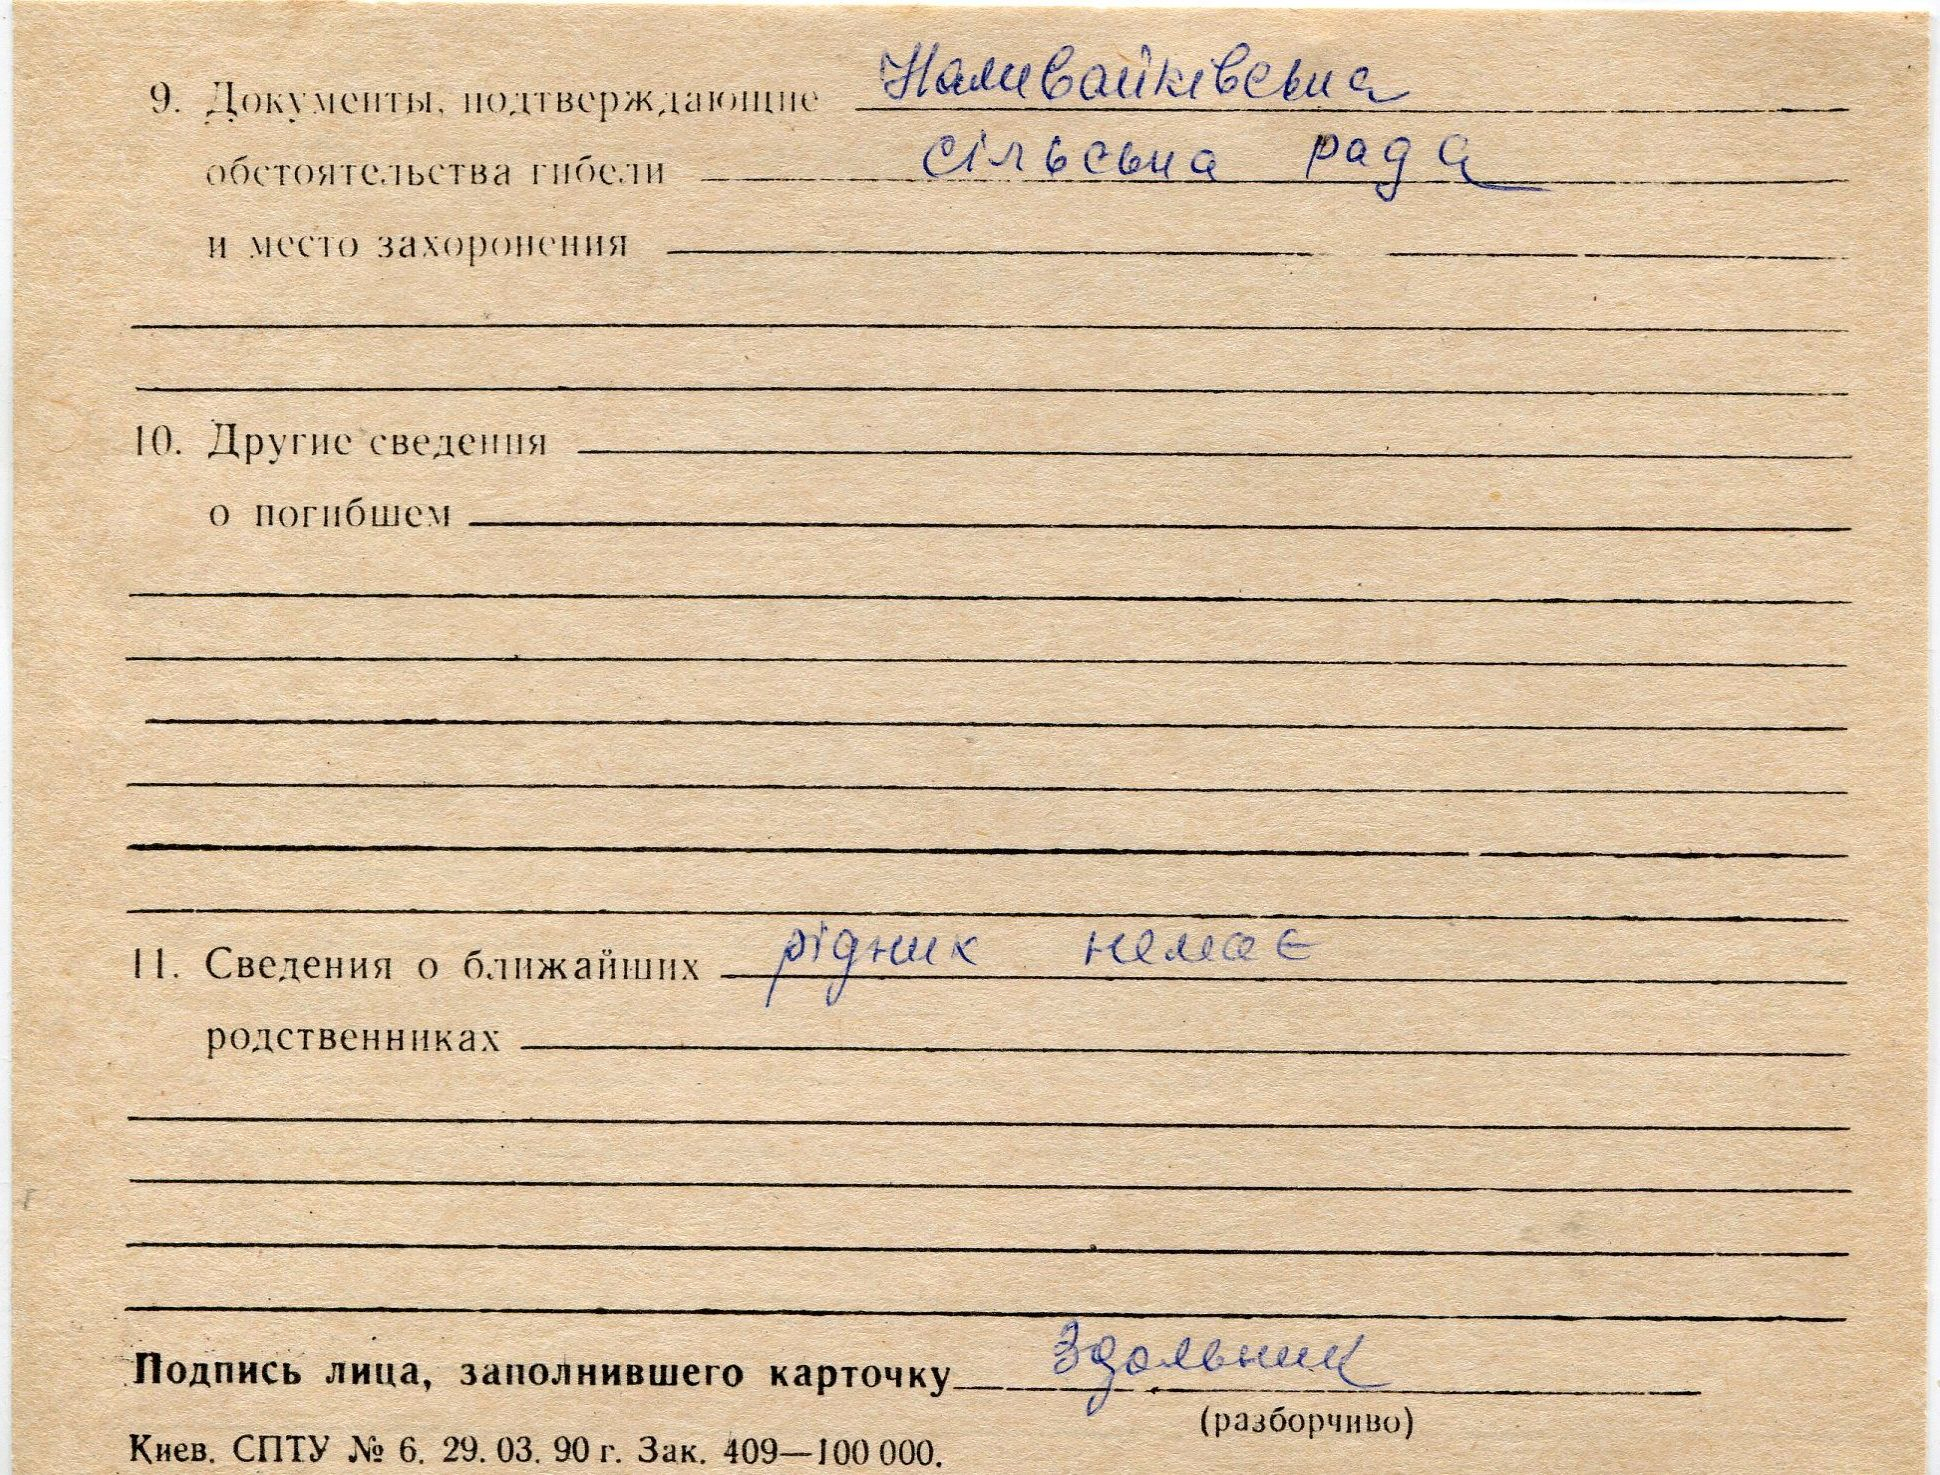 9. Документы, подтверждающие Наливайківська
обстоятельства гибели сільська рада
и место захоронения
10. Другие сведения
о погибшем
11. Сведения о ближайших рідних немає
родственниках
Подпись лица, заполнившего карточку Здольник
(разборчиво)
Киев. СПТУ № 6. 29. 03. 90 г. Зак. 409—100 000.